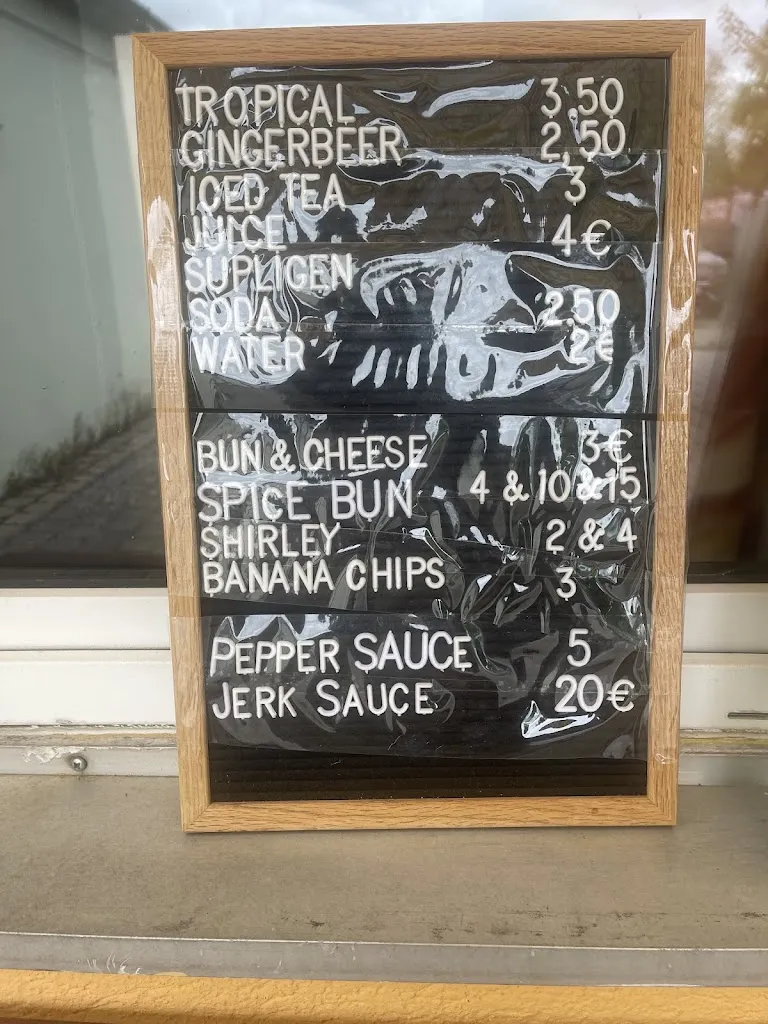 TROPICAL 3,50
GINGERBEER 2,50
ICED TEA 3
JUICE 4€
SUPLIGEN
SODA 2.50
WATER 2€
BUN & CHEESE 3€
SPICE BUN 4 & 10 & 15
SHIRLEY 2 & 4
BANANA CHIPS 3
PEPPER SAUCE 5
JERK SAUCE 20€